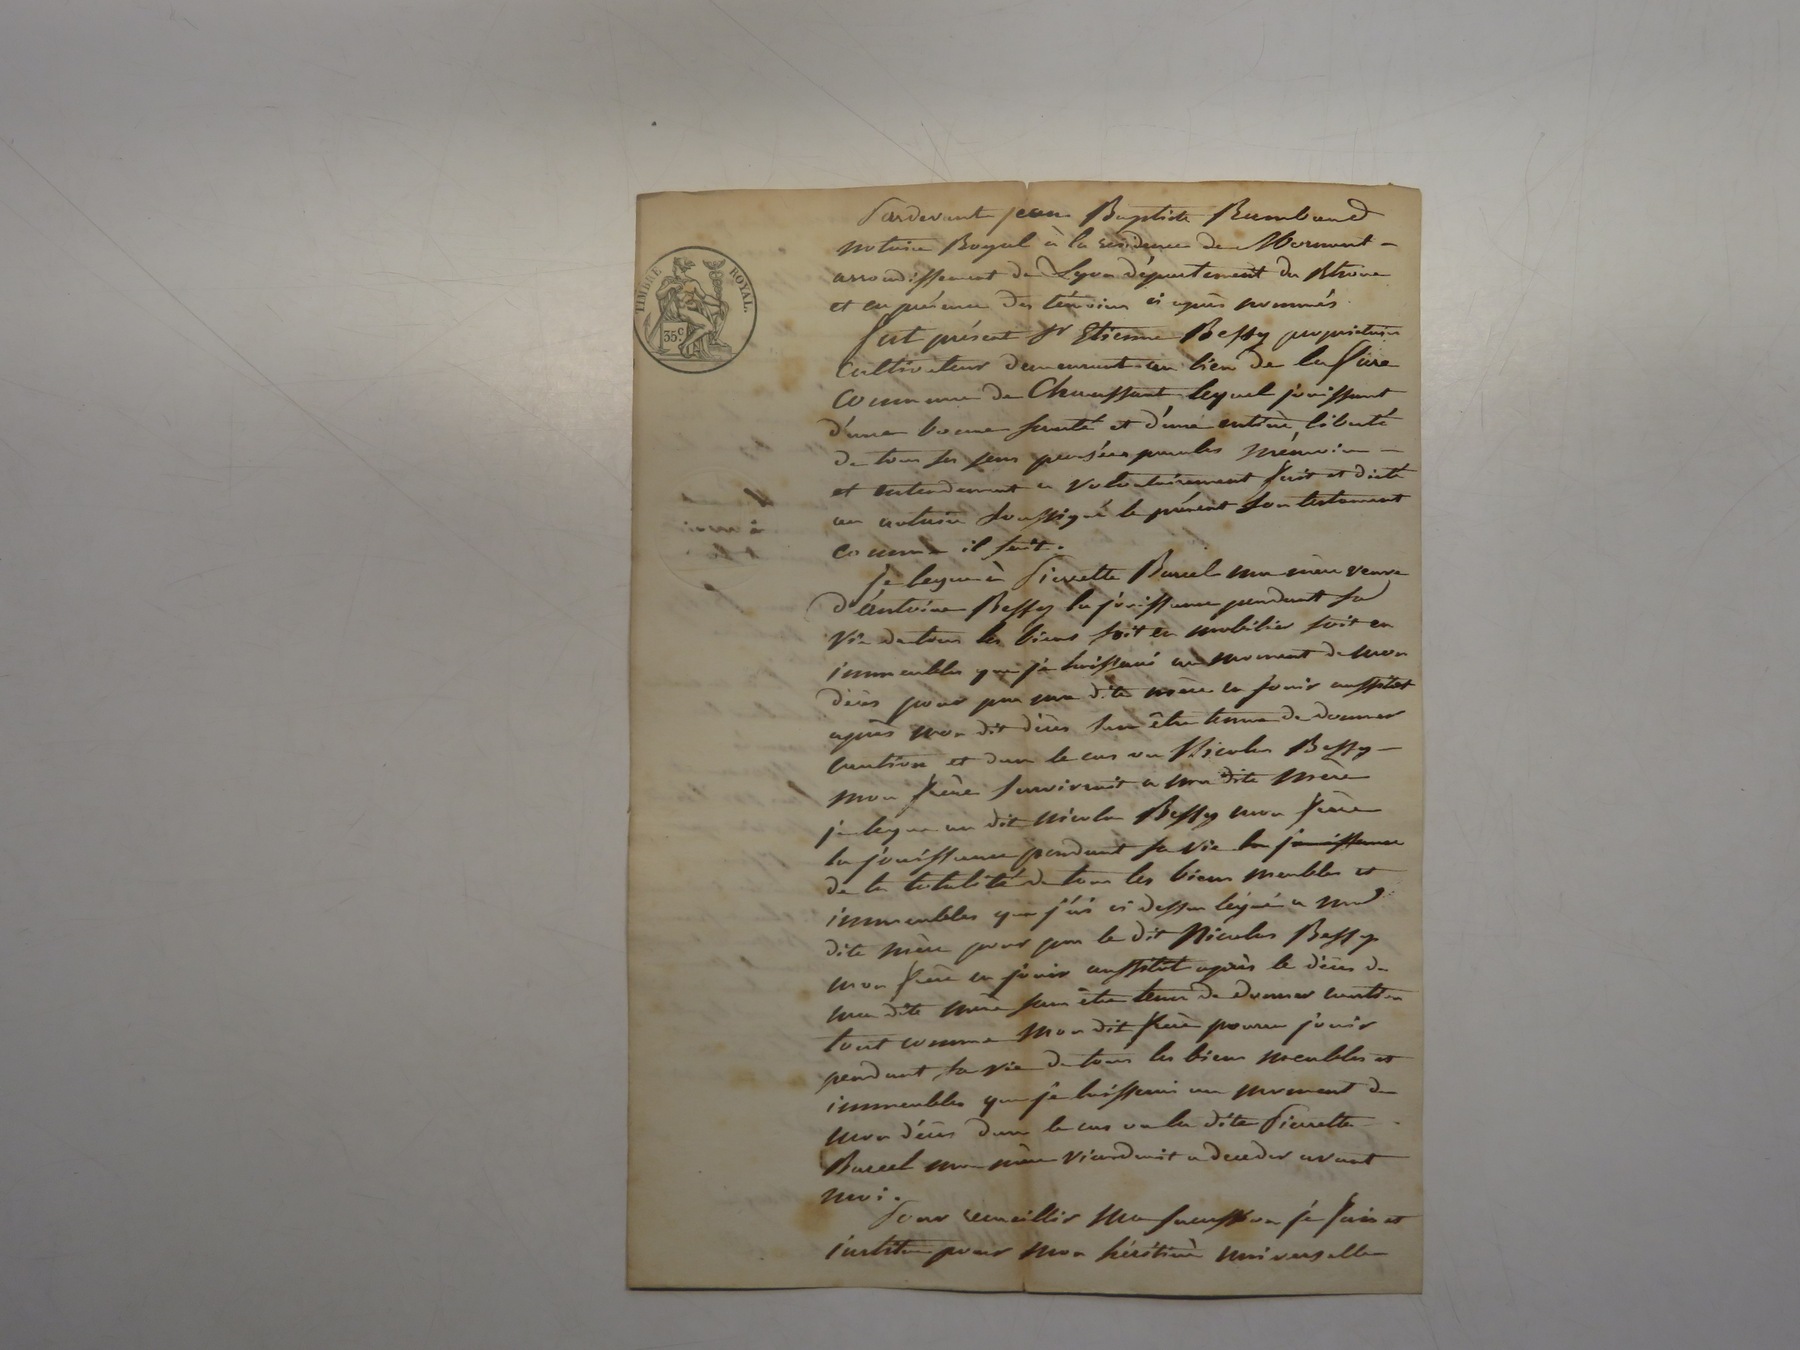 TIMBRE ROYAL.
35 c.
Pardevant jean Baptiste Rambaud
notaire Royal à la residence de Mornant
arrondissement de Lyon département du Rhone
et en présence des témoins ci après nommés
Fut présent Sr Etienne Bessy propriétaire
Cultivateur demeurant au lieu de la
Commune de Chaussant lequel jouissant
d'une bonne santé et d'une entière liberté
de tous ses sens pensées paroles mémoire
et entendement a volontairement fait et dicté
au notaire soussigné le présent son testament
comme il suit.
Je legue à Pierrette Burel ma mère veuve
d'Antoine Bessy la jouissance pendant sa
vie de tous les biens soit en mobilier soit en
immeubles que je laisserai au moment de mon
décès pour par ma dite mère en jouir aussitôt
après mon dit décès sans être tenue de donner
caution et dans le cas ou Nicolas Bessy
mon frère survivrait a ma dite mère
je legue au dit Nicolas Bessy mon frère
la jouissance pendant sa vie la jouissance
de la totalité de tous les biens meubles et
immeubles que j'ai ci dessus légués a ma
dite mère pour par le dit Nicolas Bessy
mon frère en jouir aussitôt après le décès de
ma dite mère sans être tenu de donner caution
tout comme mon dit frère pourra jouir
pendant sa vie de tous les biens meubles et
immeubles que je laisserai au moment de
mon décès dans le cas ou la dite Pierrette
Burel ma mère viendrait a deceder avant
moi.
Pour recueillir ma succession je fais et
institue pour mon héritière universelle